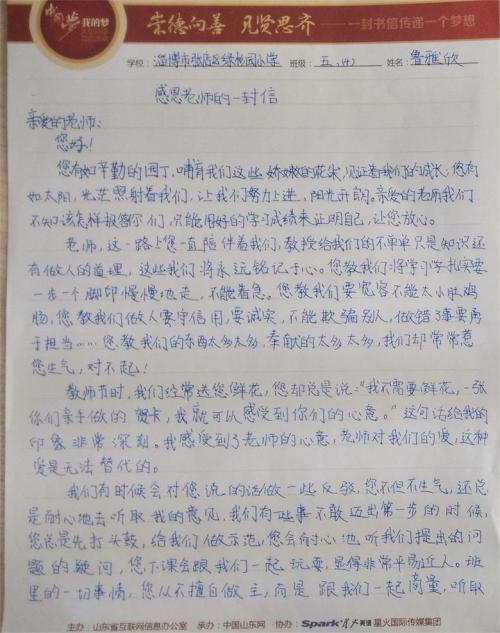 中国梦 我的梦
崇德向善 见贤思齐 一封书信传递一个梦想
学校：淄博市张店区绿杉园小学 班级：五、(4) 姓名：鲁雅欣
感恩老师的一封信
亲爱的老师：
您好！
您有如辛勤的园丁，哺育我们这些娇嫩的花朵，见证着我们的成长，您有
如太阳，光芒照射着我们，让我们努力上进，阳光开朗。亲爱的老师我们
不知该怎样报答你们，只能用好的学习成绩来证明自己，让您放心。
老师，这一路上您一直陪伴着我们，教授给我们的不单单只是知识还
有做人的道理，这些我们将永远铭记于心。您教我们将学习学扎实要
一步一个脚印慢慢地走，不能着急。您教我们要宽容不能太小肚鸡
肠，您教我们做人要守信用，要诚实，不能欺骗别人，做错了事要勇
于担当……您教我们的东西太多太多，奉献的太多太多，我们却常常惹
您生气，对不起！
教师节时，我们经常送您鲜花，您却总是说：“我不需要鲜花，一张
你们亲手做的贺卡，我就可以感受到你们的心意。”这句话给我的
印象非常深刻。我感受到了老师的心意，老师对我们的爱，这种
爱是无法替代的。
我们有时候会对您说的话做一些反驳，您不但不生气，还总
是耐心地去听取我的意见，我们有些事不敢迈出第一步的时候，
您总是先打头鼓，给我们做示范，您会耐心地听我们提出的问
题的疑问，您下课会跟我们一起玩耍，显得非常平易近人。班
里的一切事情，您从不擅自做主，而是跟我们一起商量，听取
主办：山东省互联网信息办公室 承办：中国山东网 协办：Spark星火英语 星火国际传媒集团